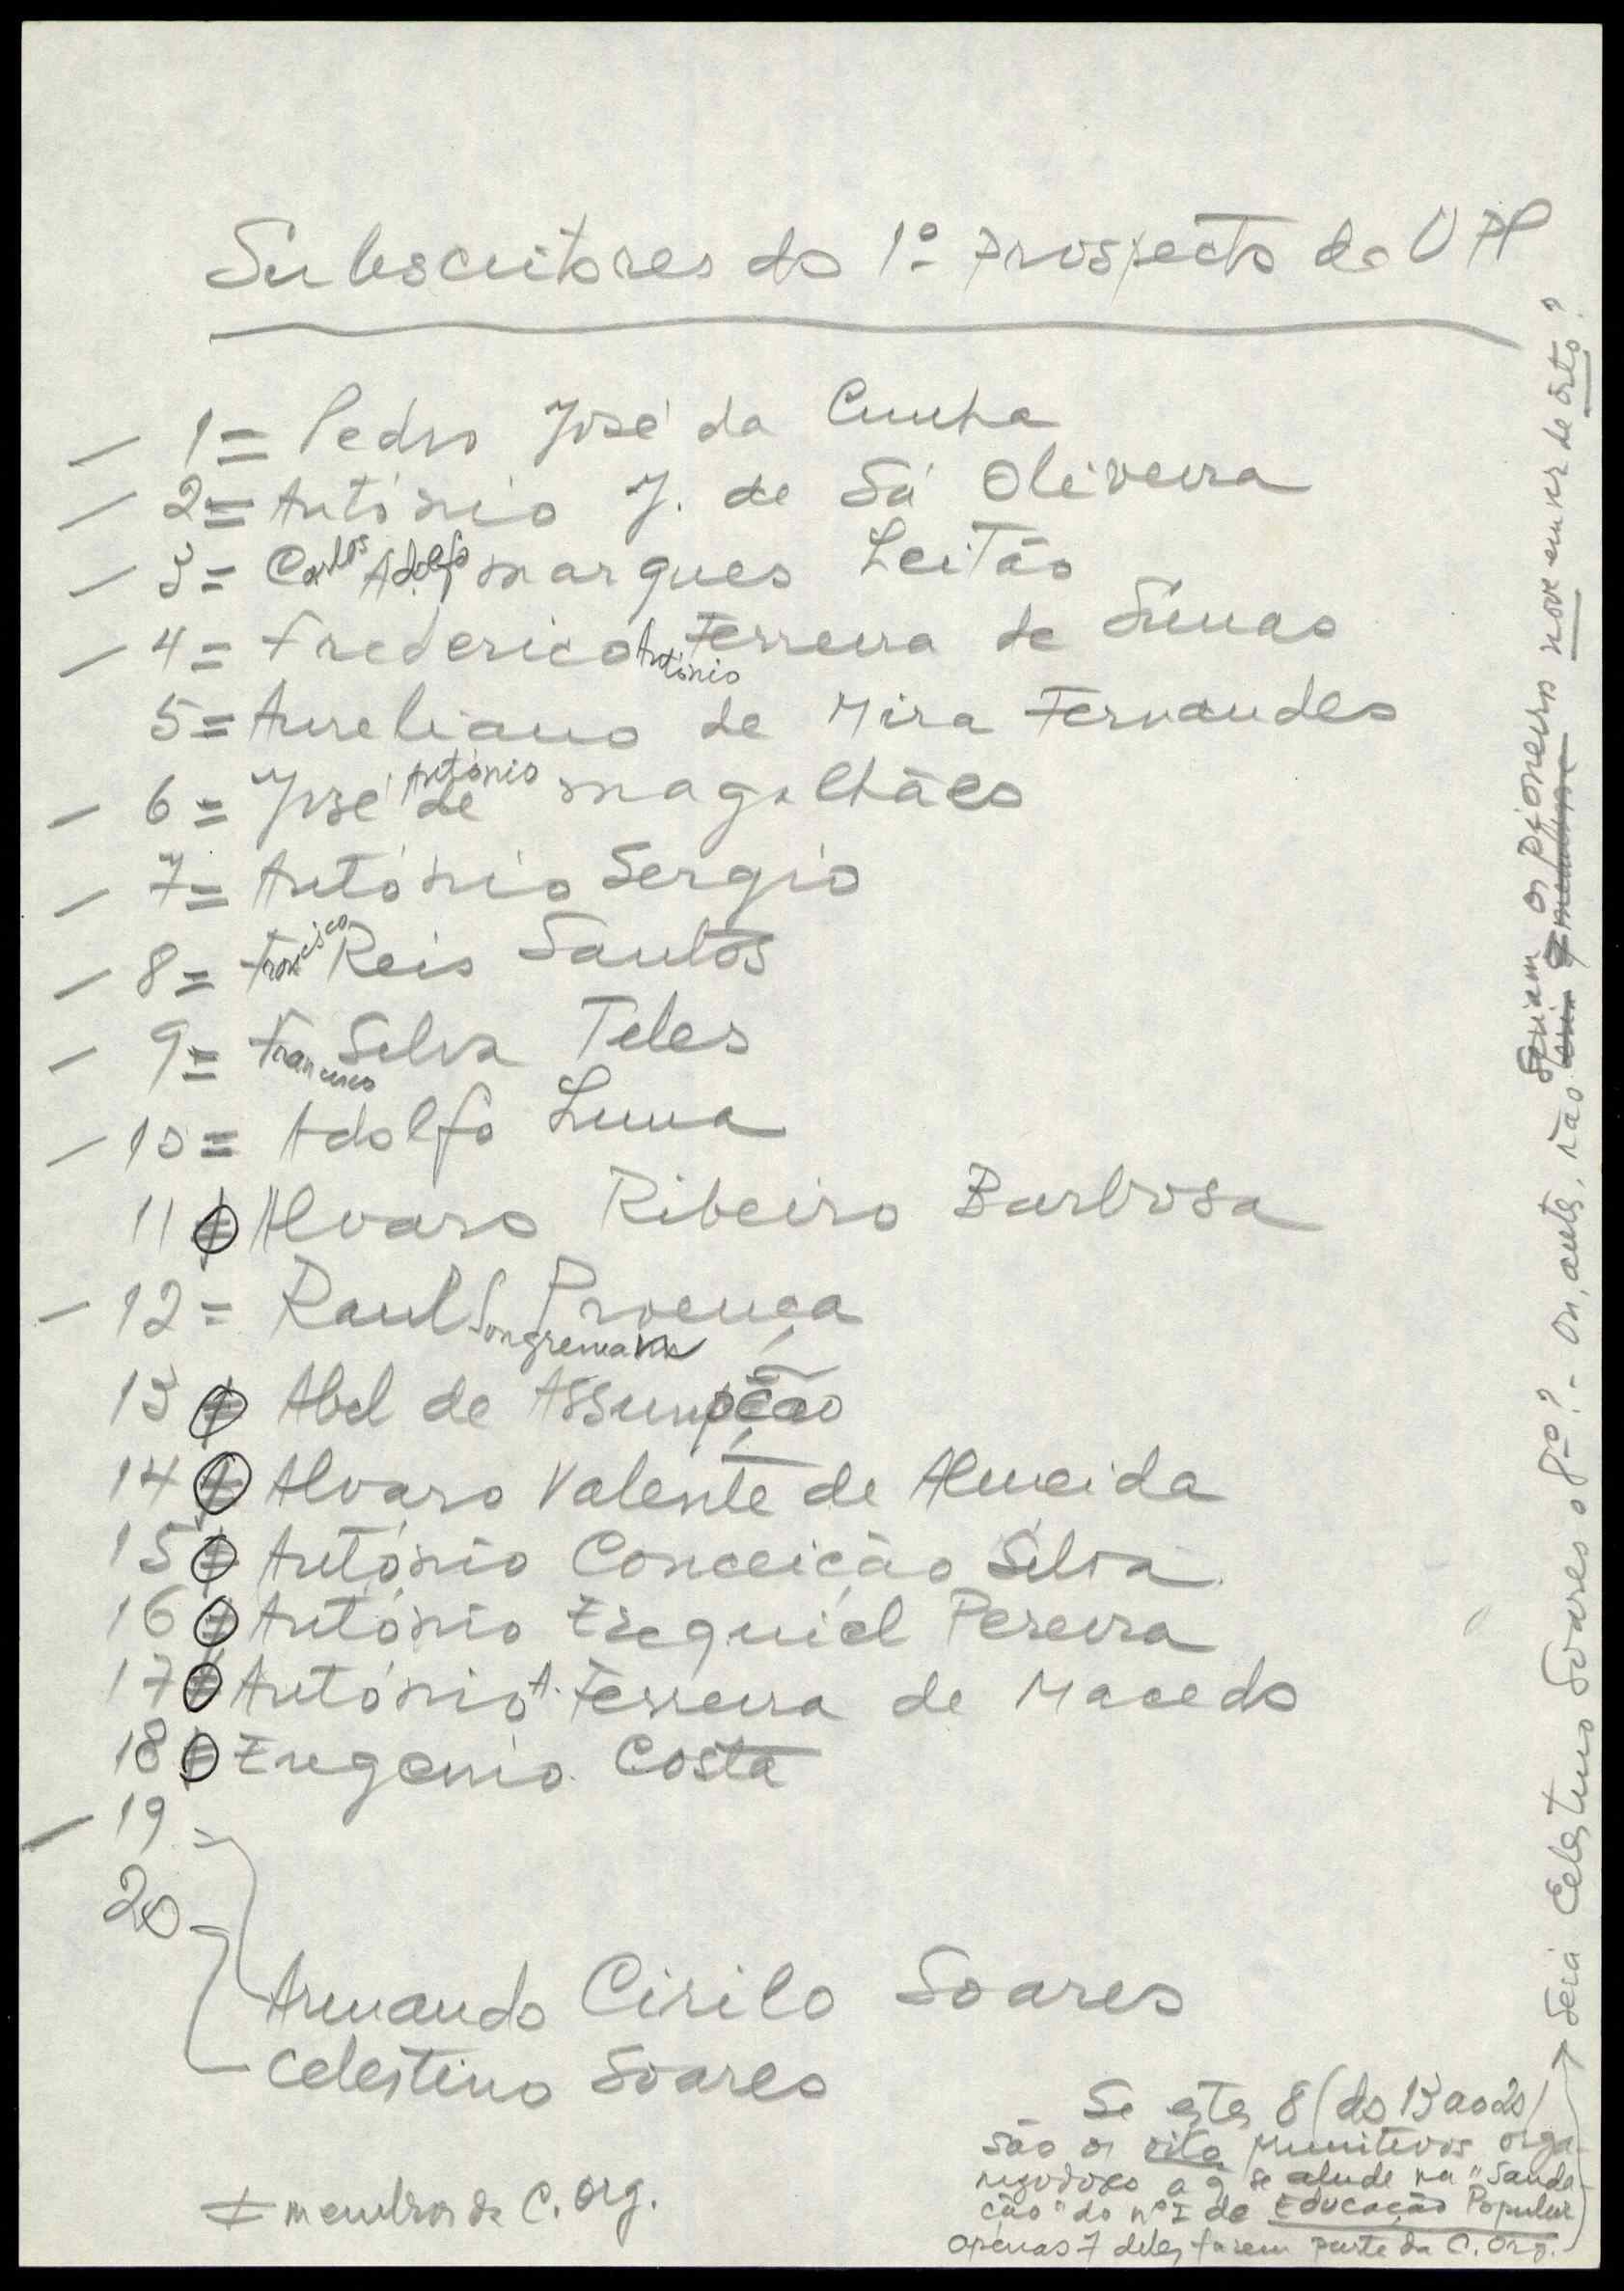 Subscritores do 1º prospecto da UPP
– 1 = Pedro José da Cunha
– 2 = António J. de Sá Oliveira
– 3 = Carlos Adolfo Marques Leitão
– 4 = Frederico António Ferreira de Simas
5 = Aureliano de Mira Fernandes
– 6 = José António de Magalhães
– 7 = António Sergio
– 8 = Francisco Reis Santos
– 9 = Francisco Silva Teles
– 10 = Adolfo Lima
11 ≠ Alvaro Ribeiro Barbosa
– 12 = Raul Sangreman Proença
13 ≠ Abel de Assumpção
14 ≠ Alvaro Valente de Almeida
15 ≠ António Conceição Silva
16 ≠ António Ezequiel Pereira
17 ≠ António A. Ferreira de Macedo
18 ≠ Eugenio Costa
– 19 –
20 –
Armando Cirilo Soares
Celestino Soares
≠ membros da C. Org.
Se estes 8 (do 13 ao 20)
são os oito primitivos orga-
nizadores a q se alude na "Sauda-
ção" do nº I da Educação Popular
apenas 7 deles fazem parte da C. Org.
→ Seria Celestino Soares o 8º? – Ou, antes, não seriam os pioneiros nove em vez de oito?